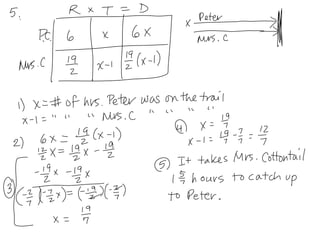 5.
R x T = D
P.C. 6 x 6x
Mrs. C 19/2 x-1 19/2 (x-1)
x Peter
Mrs. C
1) x = # of hrs. Peter was on the trail
x-1 = " " " Mrs. C " " " "
2) 6x = 19/2 (x-1)
12/2 x = 19/2 x - 19/2
-19/2 x -19/2 x
③ (-2/7)(-7/2 x) = (-19/2)(-2/7)
x = 19/7
④ x = 19/7
x-1 = 19/7 - 7/7 = 12/7
⑤ It takes Mrs. Cottontail
1 5/7 hours to catch up
to Peter.